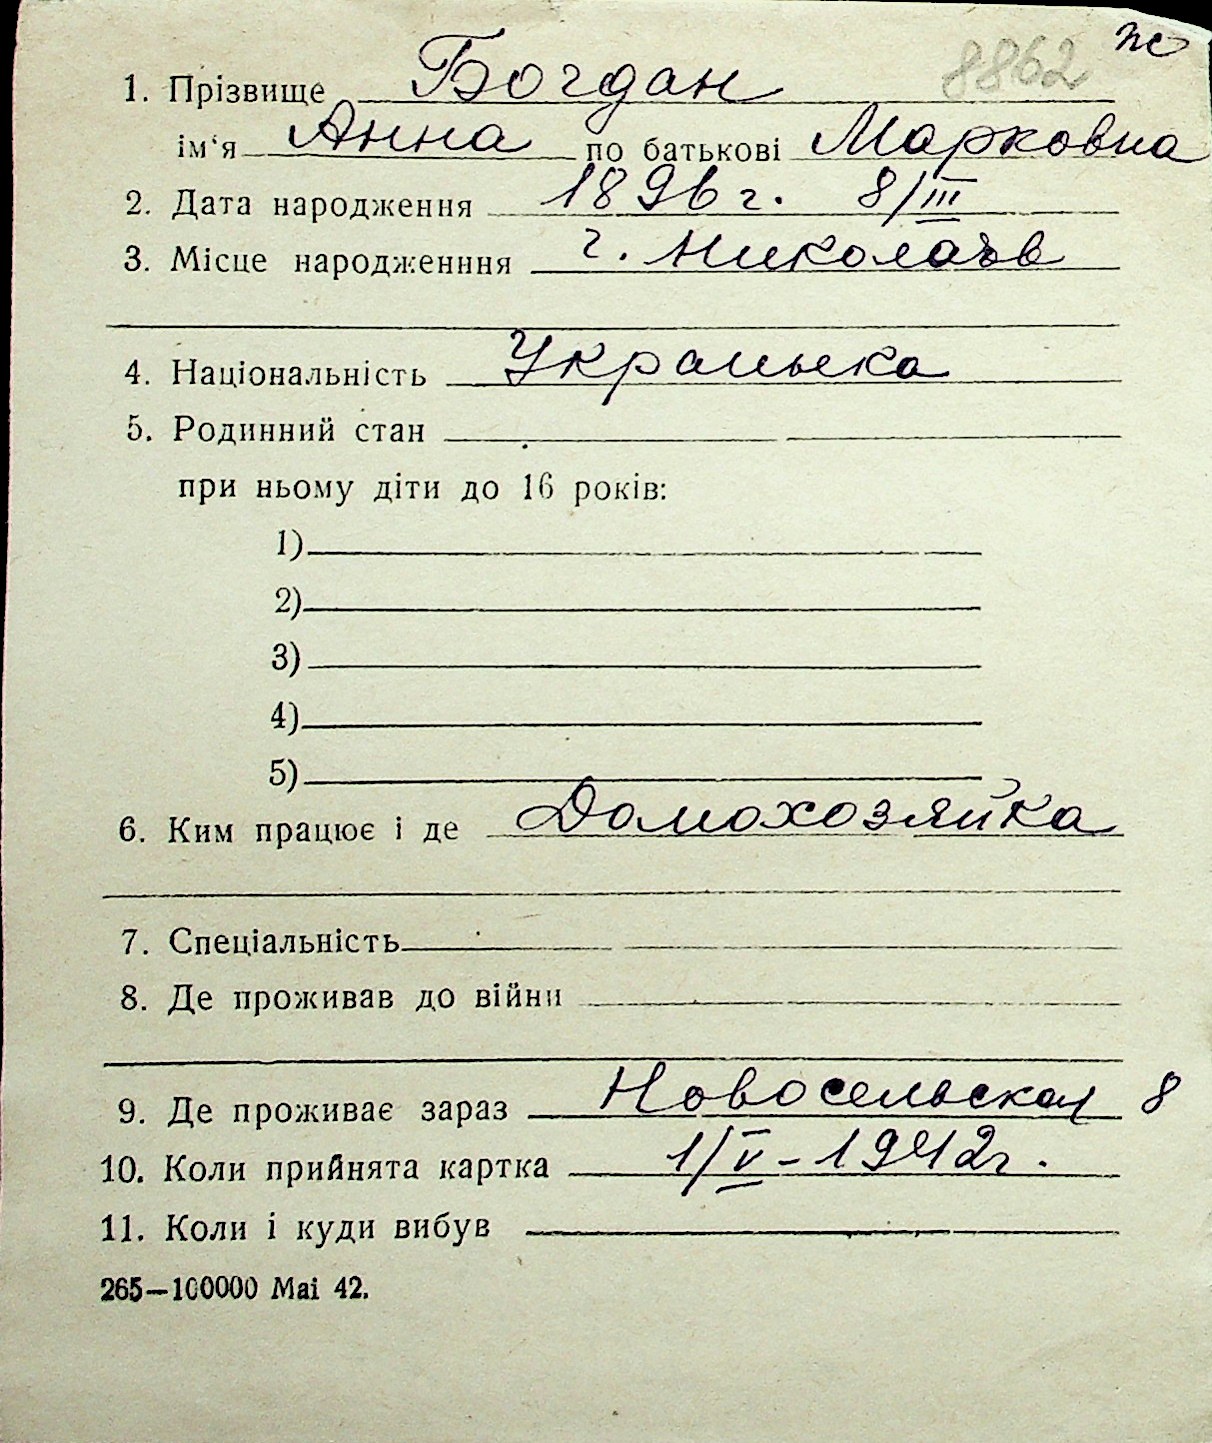 8862 ж
1. Прізвище Богдан
ім‘я Анна по батькові Марковна
2. Дата народження 1896 г. 8/III
3. Місце народженння г. Николаѣв
4. Національність Украинка
5. Родинний стан
при ньому діти до 16 років:
1)
2)
3)
4)
5)
6. Ким працює і де Домохозяйка
7. Спеціальність
8. Де проживав до війни
9. Де проживає зараз Новосельская 8
10. Коли прийнята картка 1/V – 1942г.
11. Коли і куди вибув
265—100000 Mai 42.